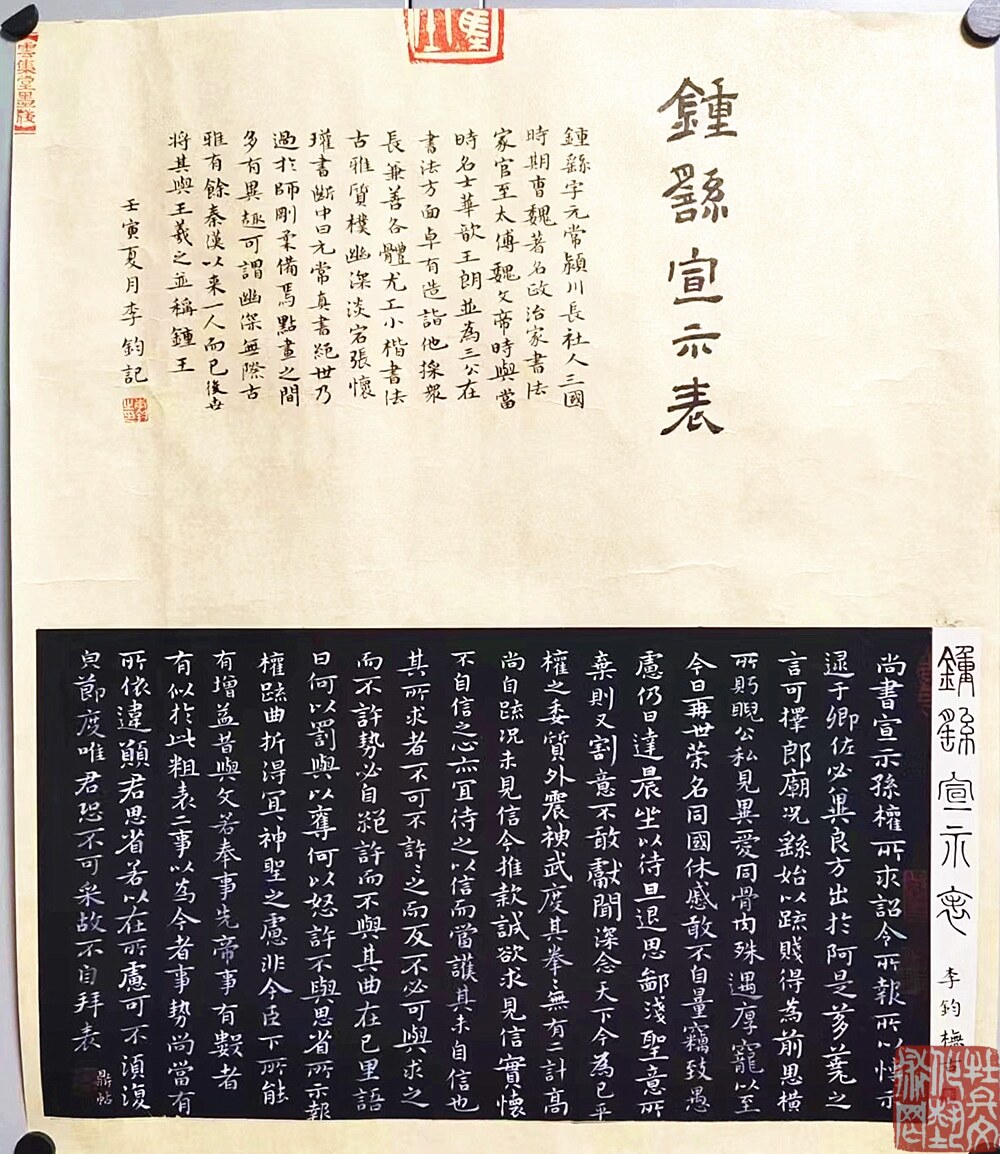 鍾繇宣示表
鍾繇字元常潁川長社人三國
時期曹魏著名政治家書法
家官至太傅魏文帝時與當
時名士華歆王朗並為三公在
書法方面卓有造詣他採眾
長兼善各體尤工小楷書法
古雅質樸幽深淡宕張懷
瓘書斷中曰元常真書絕世乃
過於師剛柔備焉點畫之間
多有異趣可謂幽深無際古
雅有餘秦漢以來一人而已後世
將其與王羲之並稱鍾王
壬寅夏月李鈞記
雲集堂墨箋
鍾繇宣示表
李鈞
尚書宣示孫權所求詔令所報所以博示
逮于卿佐必兾良方出於阿是芻蕘之
言可擇郎廟況繇始以疏賤得為前思橫
所眄睨公私見異愛同骨肉殊遇厚寵以至
今日再世榮名同國休慼敢不自量竊致愚
慮仍日達晨坐以待旦退思鄙淺聖意所
棄則又割意不敢獻聞深念天下今為已平
權之委質外震神武度其拳〻無有二計高
尚自疏況未見信今推款誠欲求見信實懷
不自信之心亦宜待之以信而當護其未自信也
其所求者不可不許〻之而反不必可與求之
而不許勢必自絕許而不與其曲在己里語
曰何以罰與以奪何以怒許不與思省所示報
權疏曲折得宜神聖之慮非今臣下所能
有增益昔與文若奉事先帝事有數者
有似於此粗表二事以為今者事勢尚當有
所依違願君思省若以在所慮可不須復
㒷節度唯君恐不可采故不自拜表